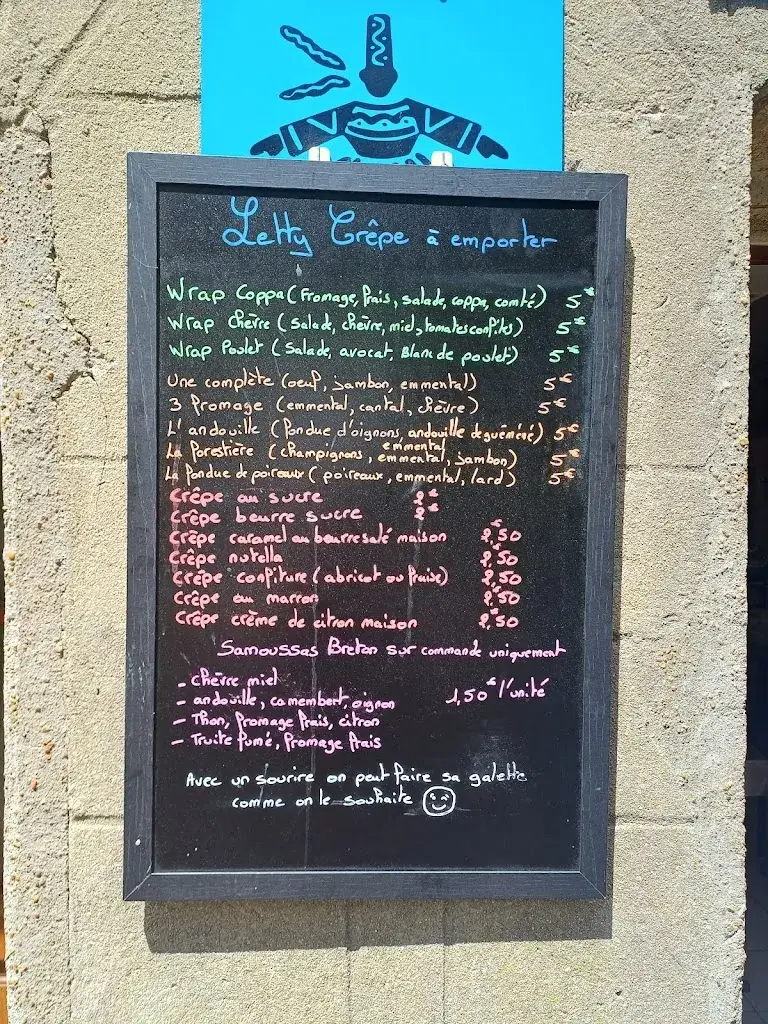 Letty Crêpe à emporter
Wrap Coppa (Fromage, frais, salade, coppa, comté) 5€
Wrap Chèvre (Salade, chèvre, miel, tomates confites) 5€
Wrap Poulet (Salade, avocat, Blanc de poulet) 5€
Une complète (oeuf, jambon, emmental) 5€
3 Fromage (emmental, cantal, chèvre) 5€
L'andouille (fondue d'oignons, andouille de guéméné) 5€
emmental
La Forestière (champignons, emmental, jambon) 5€
La fondue de poireaux (poireaux, emmental, lard) 5€
Crêpe au sucre 2€
Crêpe beurre sucre 2€
Crêpe caramel au beurre salé maison 2€50
Crêpe nutella 2€50
Crêpe confiture (abricot ou fraise) 2€50
Crêpe au marron 2€50
Crêpe crème de citron maison 2€50
Samoussas Breton sur commande uniquement
- chèvre miel
- andouille, camembert, oignon 1,50€ l'unité
- Thon, fromage frais, citron
- Truite fumé, fromage frais
Avec un sourire on peut faire sa galette
comme on le souhaite